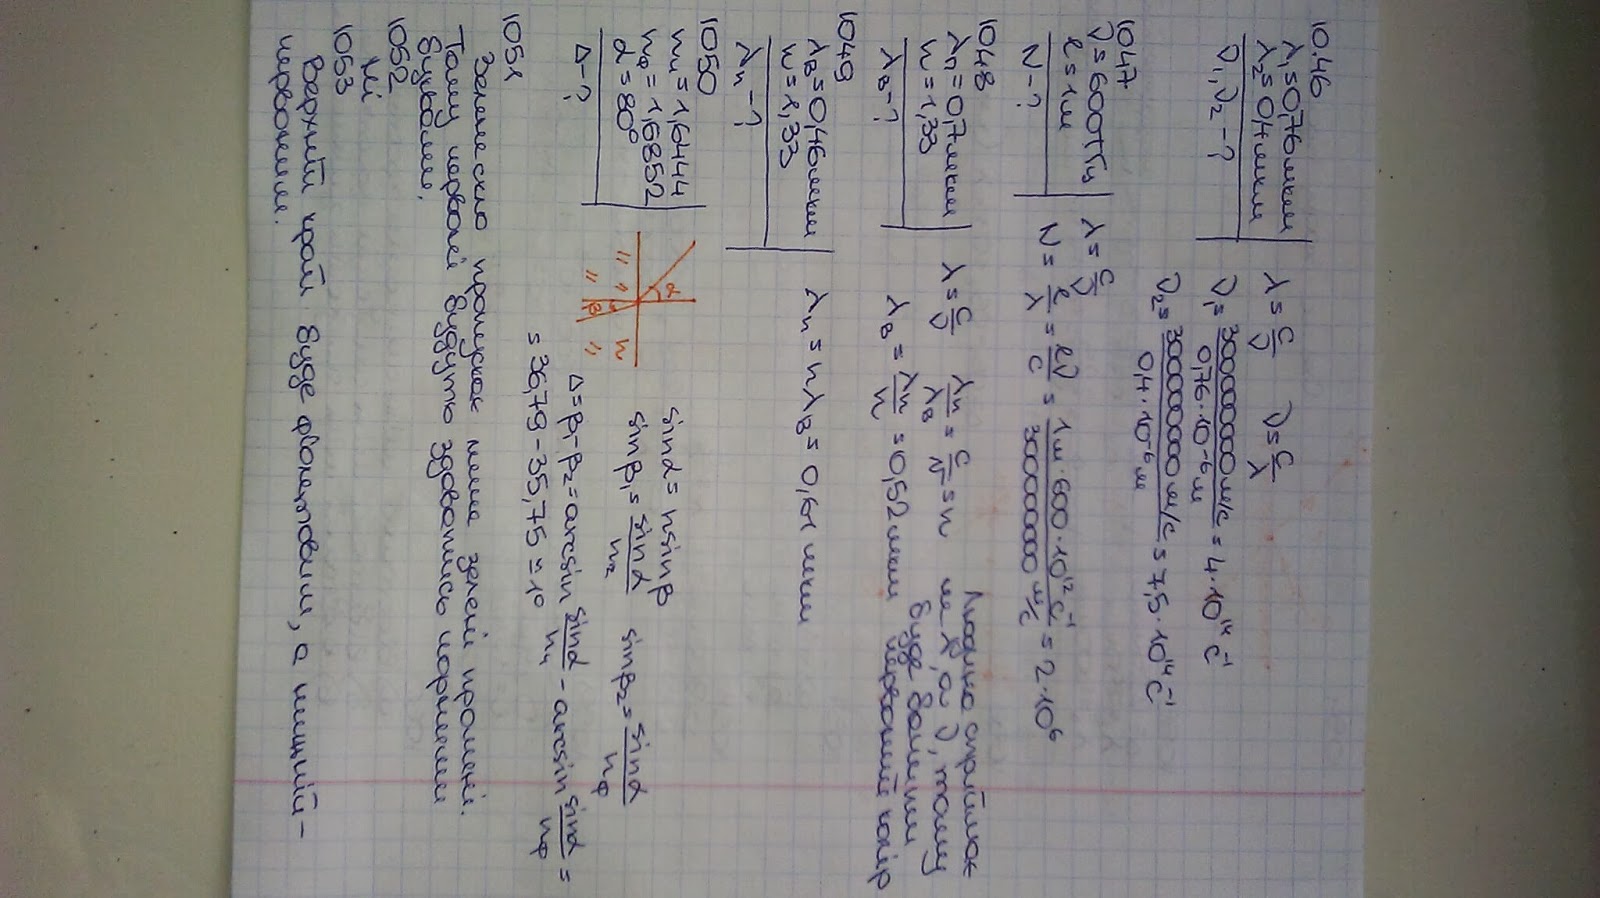 10.46
λ₁=0,76мкм
λ₂=0,4мкм
ν₁,ν₂-?
λ=c/ν ν=c/λ
ν₁=300000000м/с/0,76·10⁻⁶м=4·10¹⁴c⁻¹
ν₂=300000000м/с/0,4·10⁻⁶м=7,5·10¹⁴c⁻¹
1047
ν=600ТГц
l=1м
N-?
λ=c/ν
N=l/λ=lν/c=1м·600·10¹²c⁻¹/300000000м/с=2·10⁶
1048
λп=0,7мкм
n=1,33
λв-?
λ=c/ν λп/λв=c/v=n
λв=λп/n=0,52мкм
Людина сприймає
не λ, а ν, тому
буде бачити
червоний колір
1049
λв=0,46мкм
n=1,33
λп-?
λп=nλв=0,61мкм
1050
nч=1,6444
nф=1,6852
α=80°
Δ-?
α
n
β
sinα=nsinβ
sinβ₁=sinα/n₂ sinβ₂=sinα/nф
Δ=β₁-β₂=arcsin sinα/nч-arcsin sinα/nф=
=36,79-35,75=1°
1051
Зелене скло пропускає лише зелені промені.
Тому червоні будуть здаватись чорними
буквами.
1052
Ні
1053
Верхній край буде фіолетовим, а нижній-
червоним.